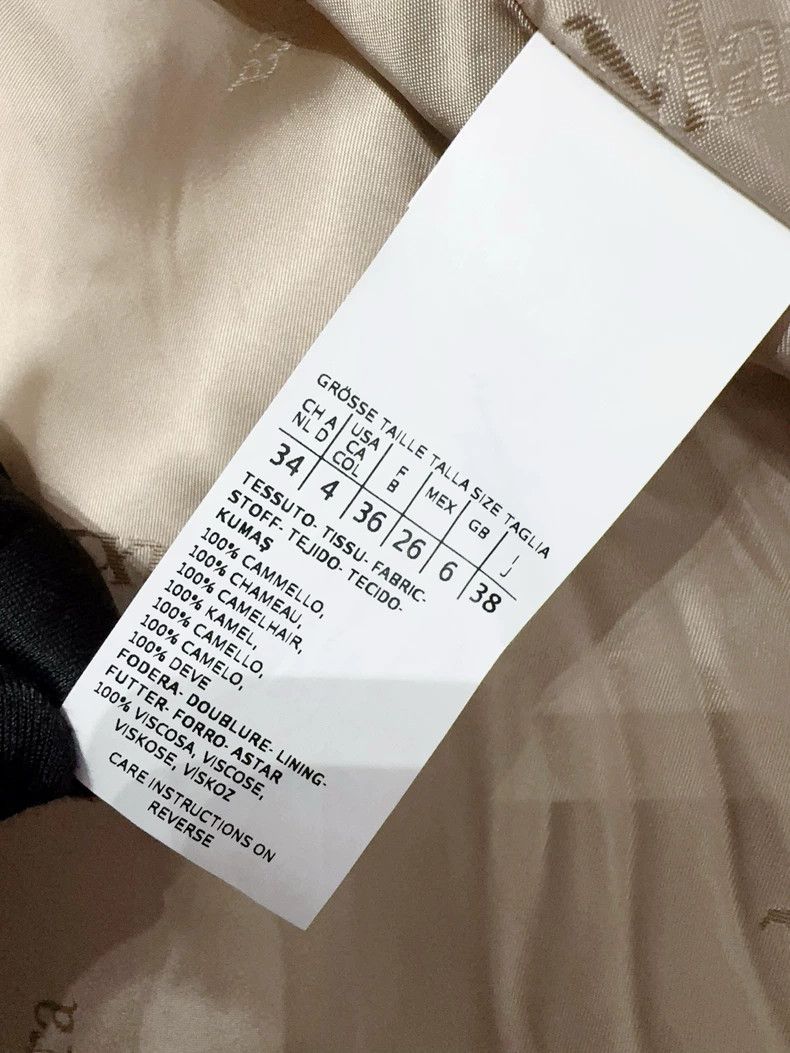 Ma
GRÖSSE TAILLE TALLA SIZE TAGLIA
CH A NL D USA CA COL F B MEX GB I J
34 4 36 26 6 38
TESSUTO- TISSU- FABRIC-
STOFF- TEJIDO- TECIDO-
KUMAŞ
100% CAMMELLO,
100% CHAMEAU,
100% CAMELHAIR,
100% KAMEL,
100% CAMELLO,
100% CAMELO,
100% DEVE
FODERA- DOUBLURE- LINING-
FUTTER- FORRO- ASTAR
100% VISCOSA, VISCOSE,
VISKOSE, VİSKOZ
CARE INSTRUCTIONS ON
REVERSE
ra